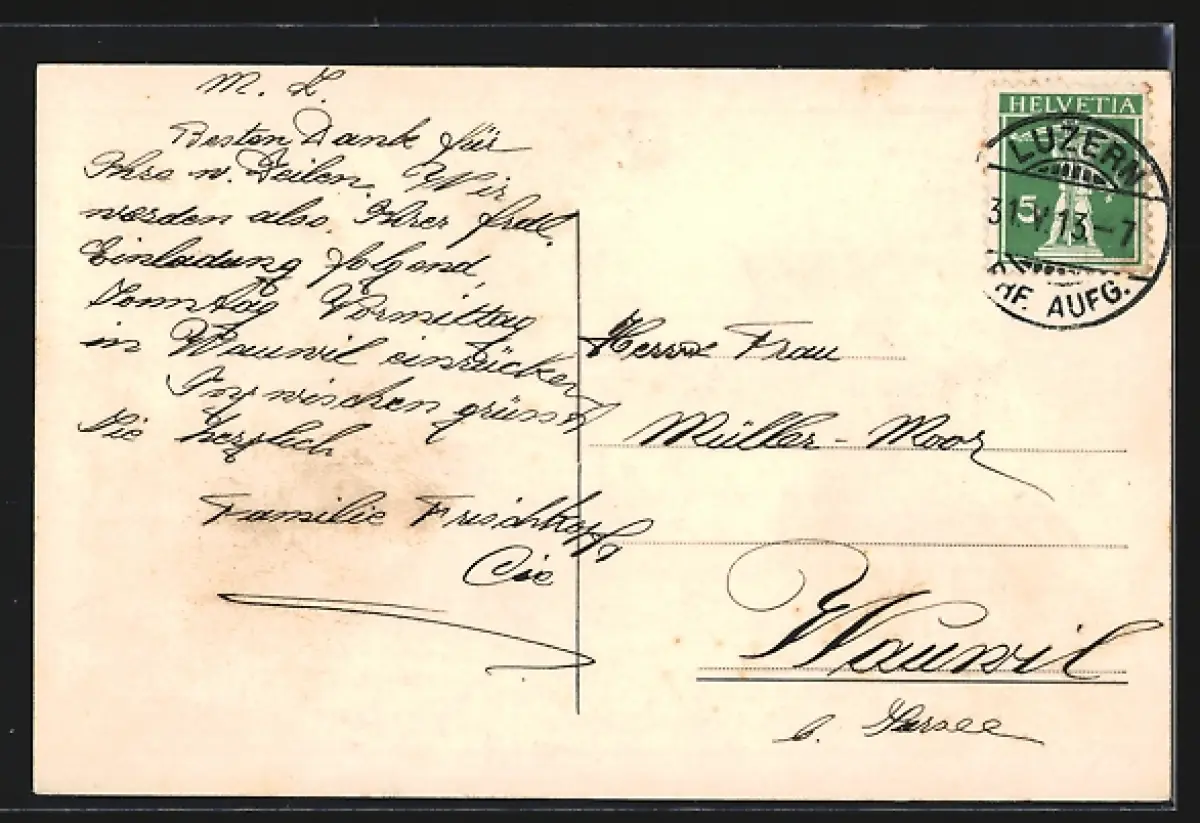 M. L.
Besten Dank für
Ihre w. Zeilen. Wir
werden also, Ihrer frdl.
Einladung folgend,
Sonntag Vormittag
in Wauwil einrücken
Inzwischen grüsst
Sie herzlich
Familie Frischkopf
Cie
HELVETIA
5
LUZERN
31.V.13.–7
BRF. AUFG.
Frau
Müller - Moor
Wauwil
b. Sursee